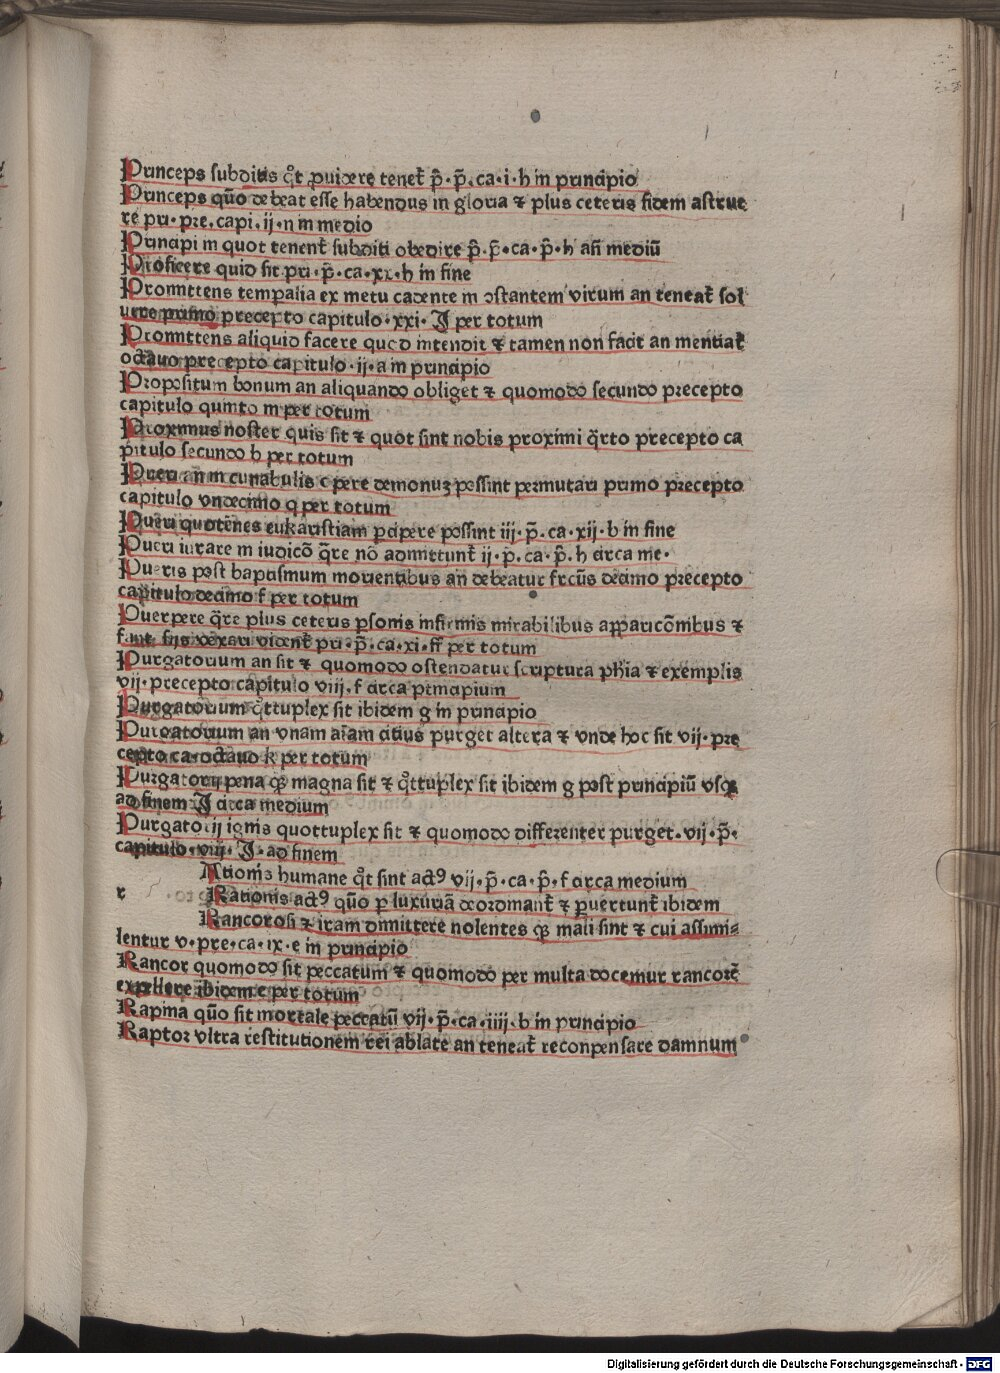 Princeps subditis q̊t ꝓuidere tenet᷑ p̄. p̄. ca. i. h in principio
Princeps quō debeat esse habendus in gloria ⁊ plus ceteris fidem astrue
re pri. pre. capi. ij. n in medio
Principi in quot tenent᷑ subditi obedire p̄. p̄. ca. p̄. h añ mediū
Proficere quid sit pri. p̄. ca. xx. h in fine
Promittens temp̱alia ex metu cadente in ɔstantem virum an teneat᷑ sol
uere primo precepto capitulo. xxi. J per totum
Promittens aliquid facere quod intendit ⁊ tamen non facit an mentiat᷑
octauo precepto capitulo. ij. a in principio
Propositum bonum an aliquando obliget ⁊ quomodo secundo precepto
capitulo quinto m per totum
Proximus noster quis sit ⁊ quot sint nobis proximi q̄rto precepto ca
pitulo secundo b per totum
Pueri añ in cunabulis opere demonuʒ possint permutari primo precepto
capitulo vndecimo q per totum
Pueri quotēnes eukaristiam ꝑcipere possint iij. p̄. ca. xij. b in fine
Pueri iurare in iudicō q̄re nō admittunt᷑ ij. p̄. ca. p̄. h circa me.
Pueris post baptismum morientibus an debeatur frcūs decimo precepto
capitulo decimo f per totum
Puerpere q̄re plus ceteris ꝑsonis infirmis mirabilibus apparicōnibus ⁊
fant. sijs vexari vident᷑ pri. p̄. ca. xi. ff per totum
Purgatorium an sit ⁊ quomodo ostendatur scriptura ph̄ia ⁊ exemplis
vij. precepto capitulo viij. f circa principium
Purgatorium q̊ttuplex sit ibidem g in principio
Purgatorium an vnam aīam citius purget altera ⁊ vnde hoc sit vij. pre
cepto ca. octauo k per totum
Purgatorij pena qꝫ magna sit ⁊ q̊ttuplex sit ibidem g post principiū vsqꝫ
ad finem J circa medium
Purgatorij ignis quottuplex sit ⁊ quomodo differenter purget. vij. p̄.
capitulo. viij. J. ad finem
Ationis humane q̊t sint actꝰ vij. p̄. ca. p̄. f circa medium
r Rationis actꝰ quō ꝑ luxuriā deordinant᷑ ⁊ ꝑuertunt᷑ ibidem
Rancorosi ⁊ iram dimittere nolentes qꝫ mali sint ⁊ cui assimi=
lentur v. pre. ca. ix. e in principio
Rancor quomodo sit peccatum ⁊ quomodo per multa docemur rancorē
expellere ibidem e per totum
Rapina quō sit mortale peccatū vij. p̄. ca. iiij. b in principio
Raptor vltra restitutionem rei ablate an teneat᷑ reconpensare damnum
Digitalisierung gefördert durch die Deutsche Forschungsgemeinschaft - DFG